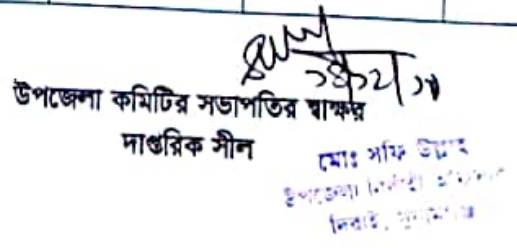 উপজেলা কমিটির সভাপতির স্বাক্ষর
দাপ্তরিক সীল
মোঃ সফি উল্লাহ
উপজেলা নির্বাহী
দিরাই, সুনামগঞ্জ